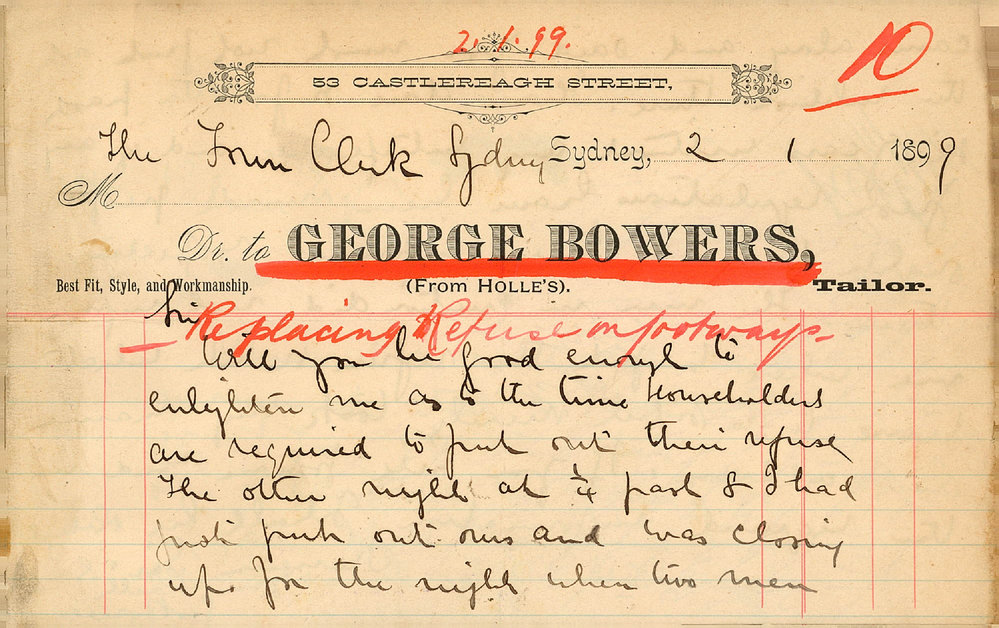 2.1.99.
10
53 CASTLEREAGH STREET,
The Town Clerk Sydney Sydney, 2 1 1899
M
Dr. to GEORGE BOWERS,
Best Fit, Style, and Workmanship. (From HOLLE'S). Tailor.
Sir
Replacing Refuse on footways
Will you be good enough to
enlighten me as to the time Householders
are required to put out their refuse
The other night at ¼ past 8 I had
just put out ours and was closing
up for the night when two men